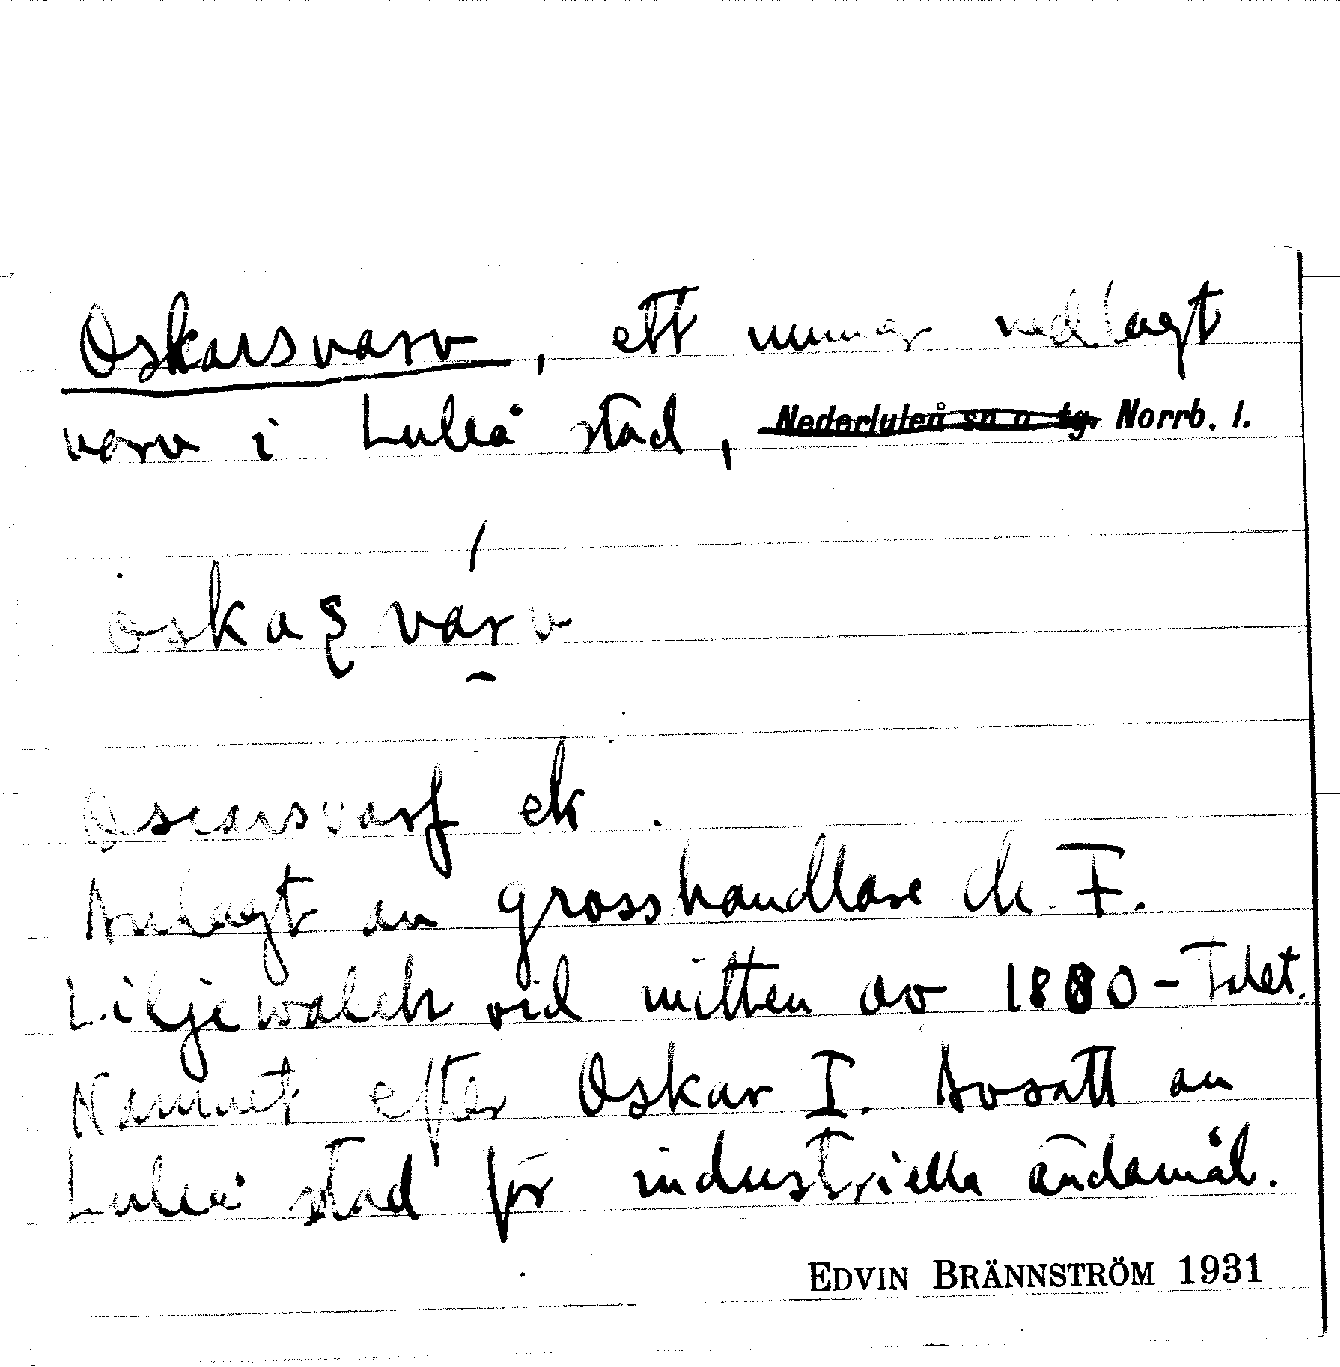 Oskarsvarv, ett numer nedlagt
varv i Luleå stad, Nederluleå sn o. tg. Norrb. l.
oskaʂ varv
Oscarsvarf ek.
Anlagt av grosshandlare Ch. F.
Liljewalch vid mitten av 1880-talet.
Namnet efter Oskar I. Avsatt av
Luleå stad för industriella ändamål.
EDVIN BRÄNNSTRÖM 1931